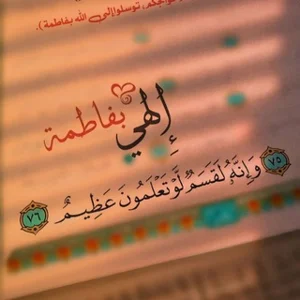 حوائجكم، توسلوا إلى الله بفاطمة).
إلهي بفاطمة
٧٥ وَإِنَّهُ لَقَسَمٌ لَّوْ تَعْلَمُونَ عَظِيمٌ ٧٦